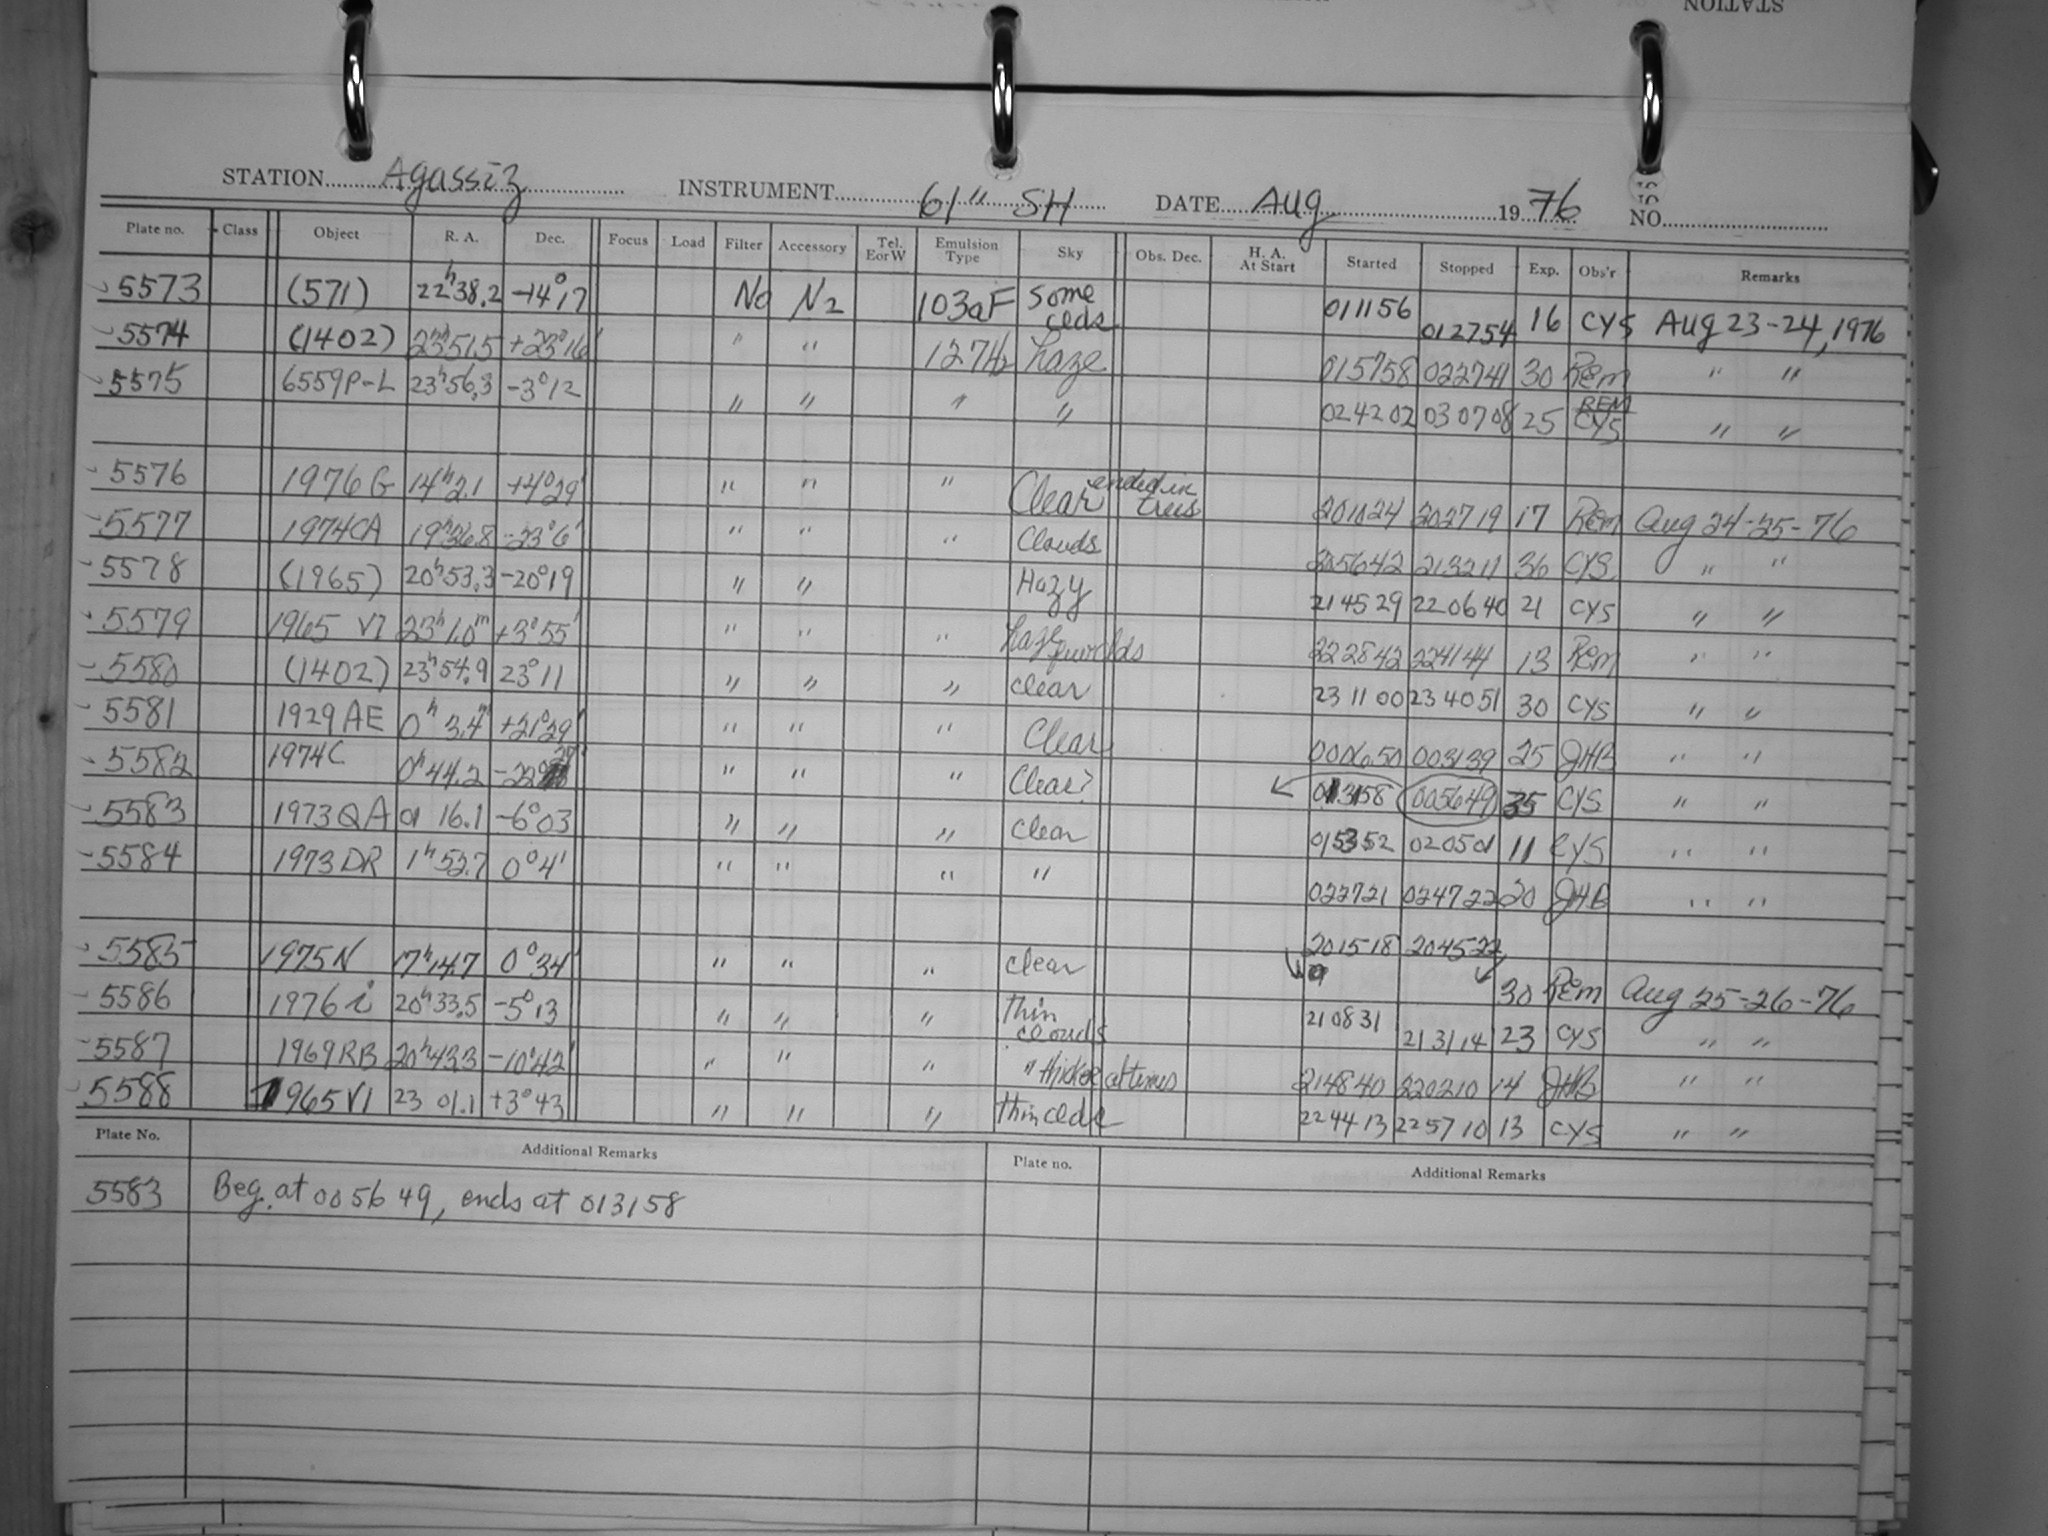 STATION Agassiz INSTRUMENT 61" SH DATE Aug 1976 NO.
Plate no. Class Object R. A. Dec. Focus Load Filter Accessory Tel. E or W Emulsion Type Sky Obs. Dec. H. A. At Start Started Stopped Exp. Obs'r Remarks
5573 (571) 22h38.2 -14°17 No N2 103aF some clds 011156 012754 16 CYS Aug 23-24, 1976
5574 (1402) 23h51.5 +23°16' " " 127H2 haze 015758 022741 30 REM " "
5575 6559P-L 23h56.3 -3°12 " " " " 024202 030708 25 REM CYS " "
5576 1976G 14h2.1 +4°29' " " " Clear ended in trees 201024 202719 17 REM Aug 24-25-76
5577 1974CA 19h36.8 -23°6' " " " Clouds 205642 213211 36 CYS " "
5578 (1965) 20h53.3 -20°19 " " Hazy 214529 220640 21 CYS " "
5579 1965 VI 23h1.0m +3°55' " " " haze 222842 224144 13 REM " "
5580 (1402) 23h54.9 23°11 " " " clear 231100 234051 30 CYS " "
5581 1929 AE 0h 3.4m +21°29' " " " Clear 000650 003139 25 JHB " "
5582 1974C 0h44.2 -22° " " " Clear? 013158 005649 35 CYS " "
5583 1973QA 01 16.1 -6°03 " " " clear 015352 020501 11 CYS " "
5584 1973DR 1h53.7 0°4' " " " " 022721 024722 20 JHB " "
5585 1975N 17h14.7 0°34' " " " clear 201518 204522 30 REM Aug 25-26-76
5586 1976 i 20h33.5 -5°13 " " " thin clouds 210831 213114 23 CYS " "
5587 1969RB 20h43.3 -10°42' " " " " thicker at times 214840 220210 14 JHB " "
5588 1965 VI 23 01.1 +3°43 " " " thin clds 224413 225710 13 CYS " "
Plate No. Additional Remarks Plate no. Additional Remarks
5583 Beg. at 005649, ends at 013158